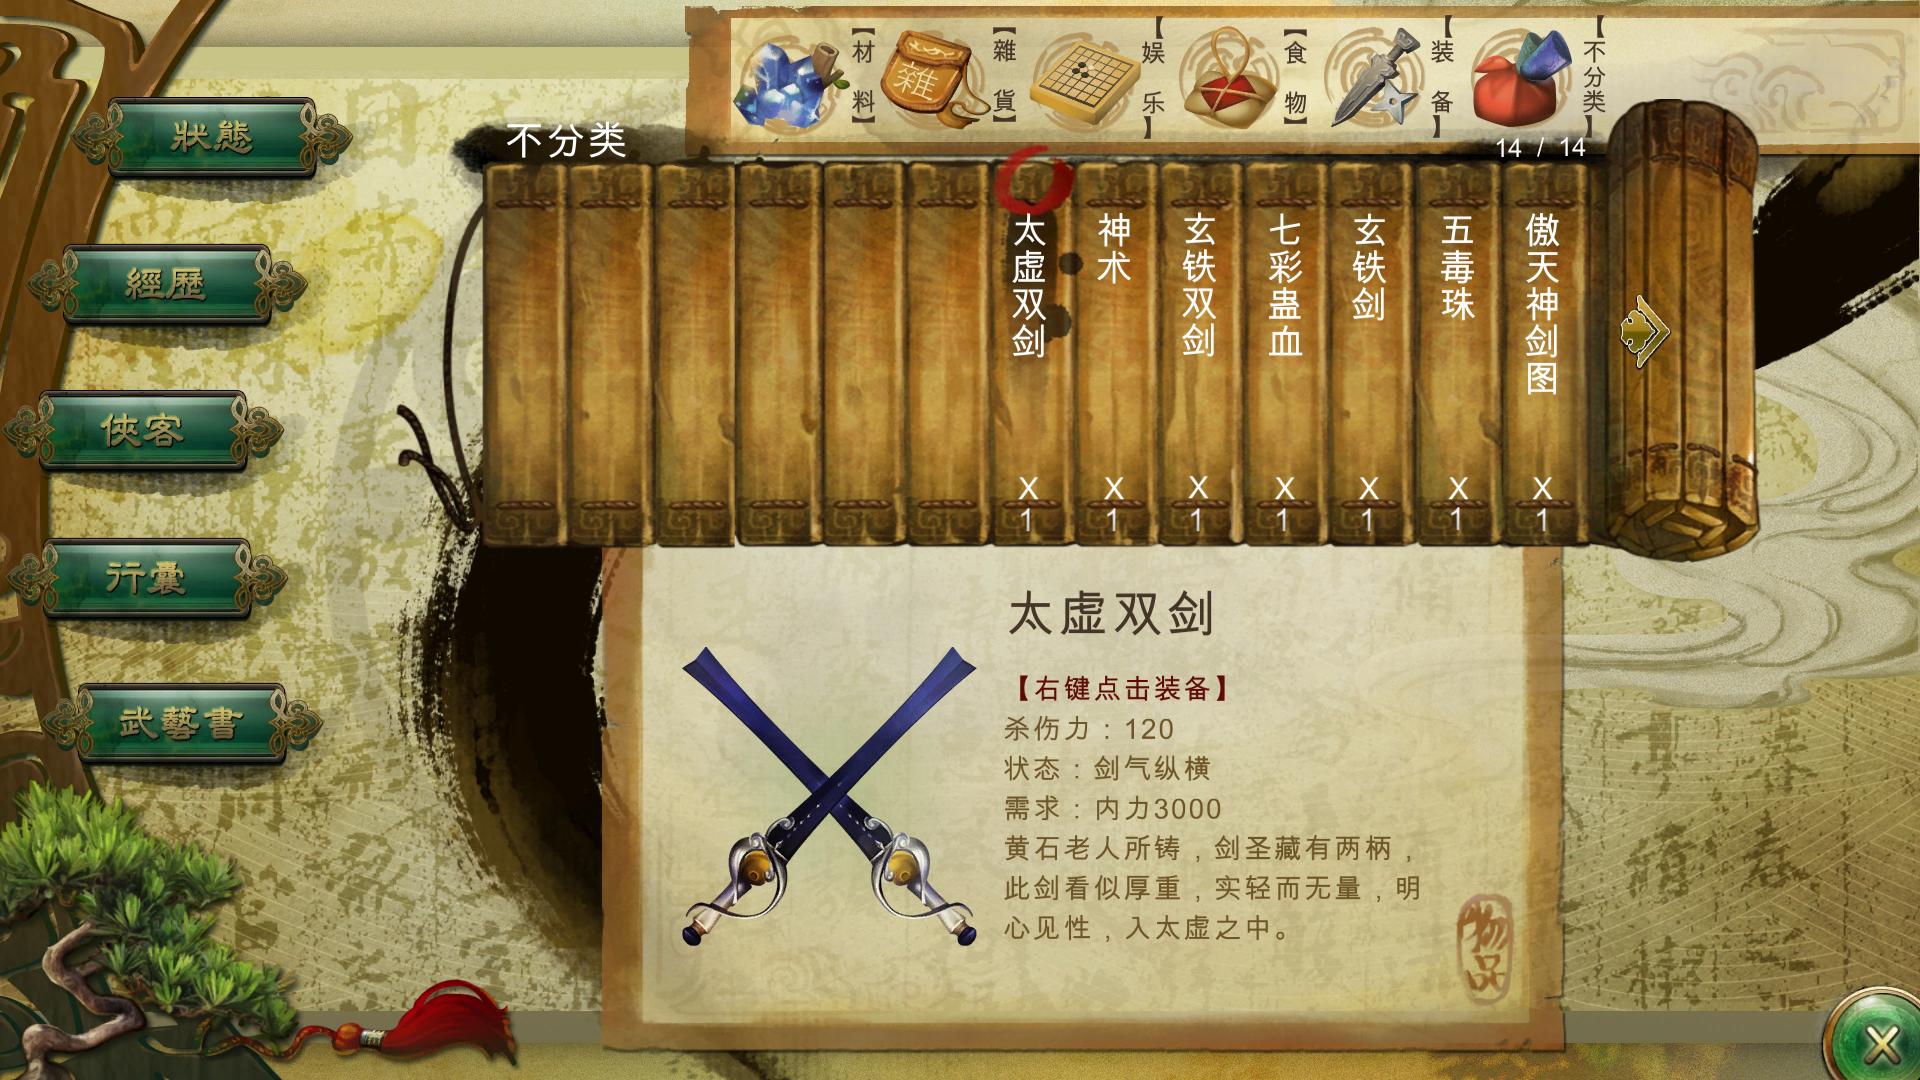 【材料】
【雜貨】
雜
【娱乐】
【食物】
【装备】
【不分类】
14 / 14
不分类
狀態
經歷
俠客
行囊
武藝書
太虚双剑
X
1
神术
X
1
玄铁双剑
X
1
七彩蛊血
X
1
玄铁剑
X
1
五毒珠
X
1
傲天神剑图
X
1
太虚双剑
【右键点击装备】
杀伤力：120
状态：剑气纵横
需求：内力3000
黄石老人所铸，剑圣藏有两柄，
此剑看似厚重，实轻而无量，明
心见性，入太虚之中。
物品